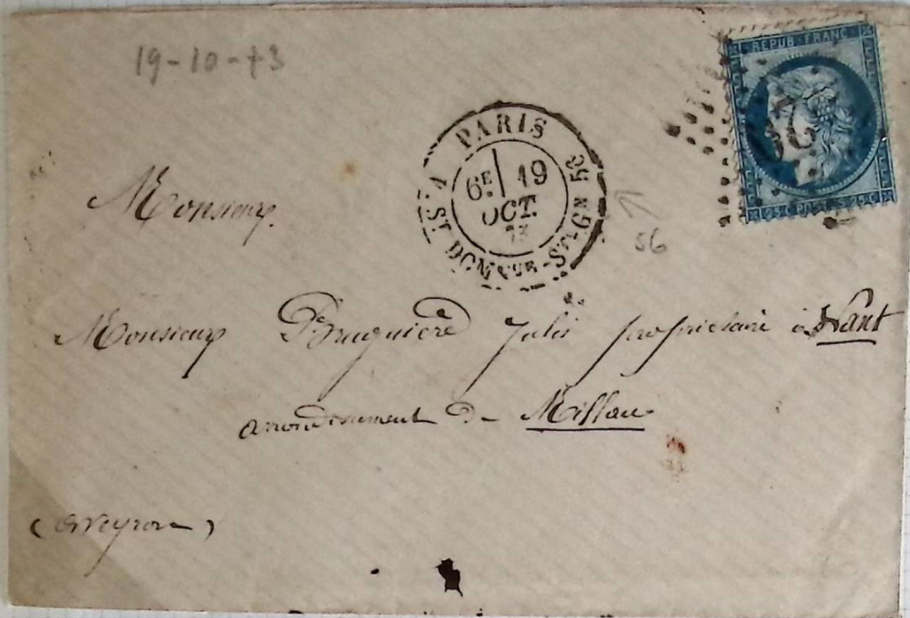 19-10-73
REPUB. FRANC.
25 C. POSTES 25 C.
PARIS
6E 19
OCT.
73
R. ST DOMQUE-ST-GN 56
56
Monsieur
Monsieur Bruguière Jules propriétaire à Nant
arrondissement de Millau
(Aveyron)